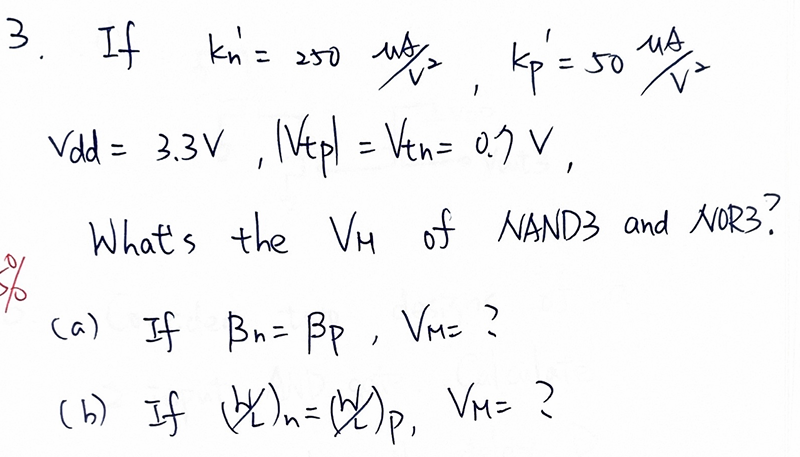 3. If kn' = 250 μA/V², kp' = 50 μA/V²
Vdd = 3.3V, |Vtp| = Vtn = 0.7 V,
What's the VM of NAND3 and NOR3?
%
(a) If βn = βp, VM = ?
(b) If (W/L)n = (W/L)p, VM = ?